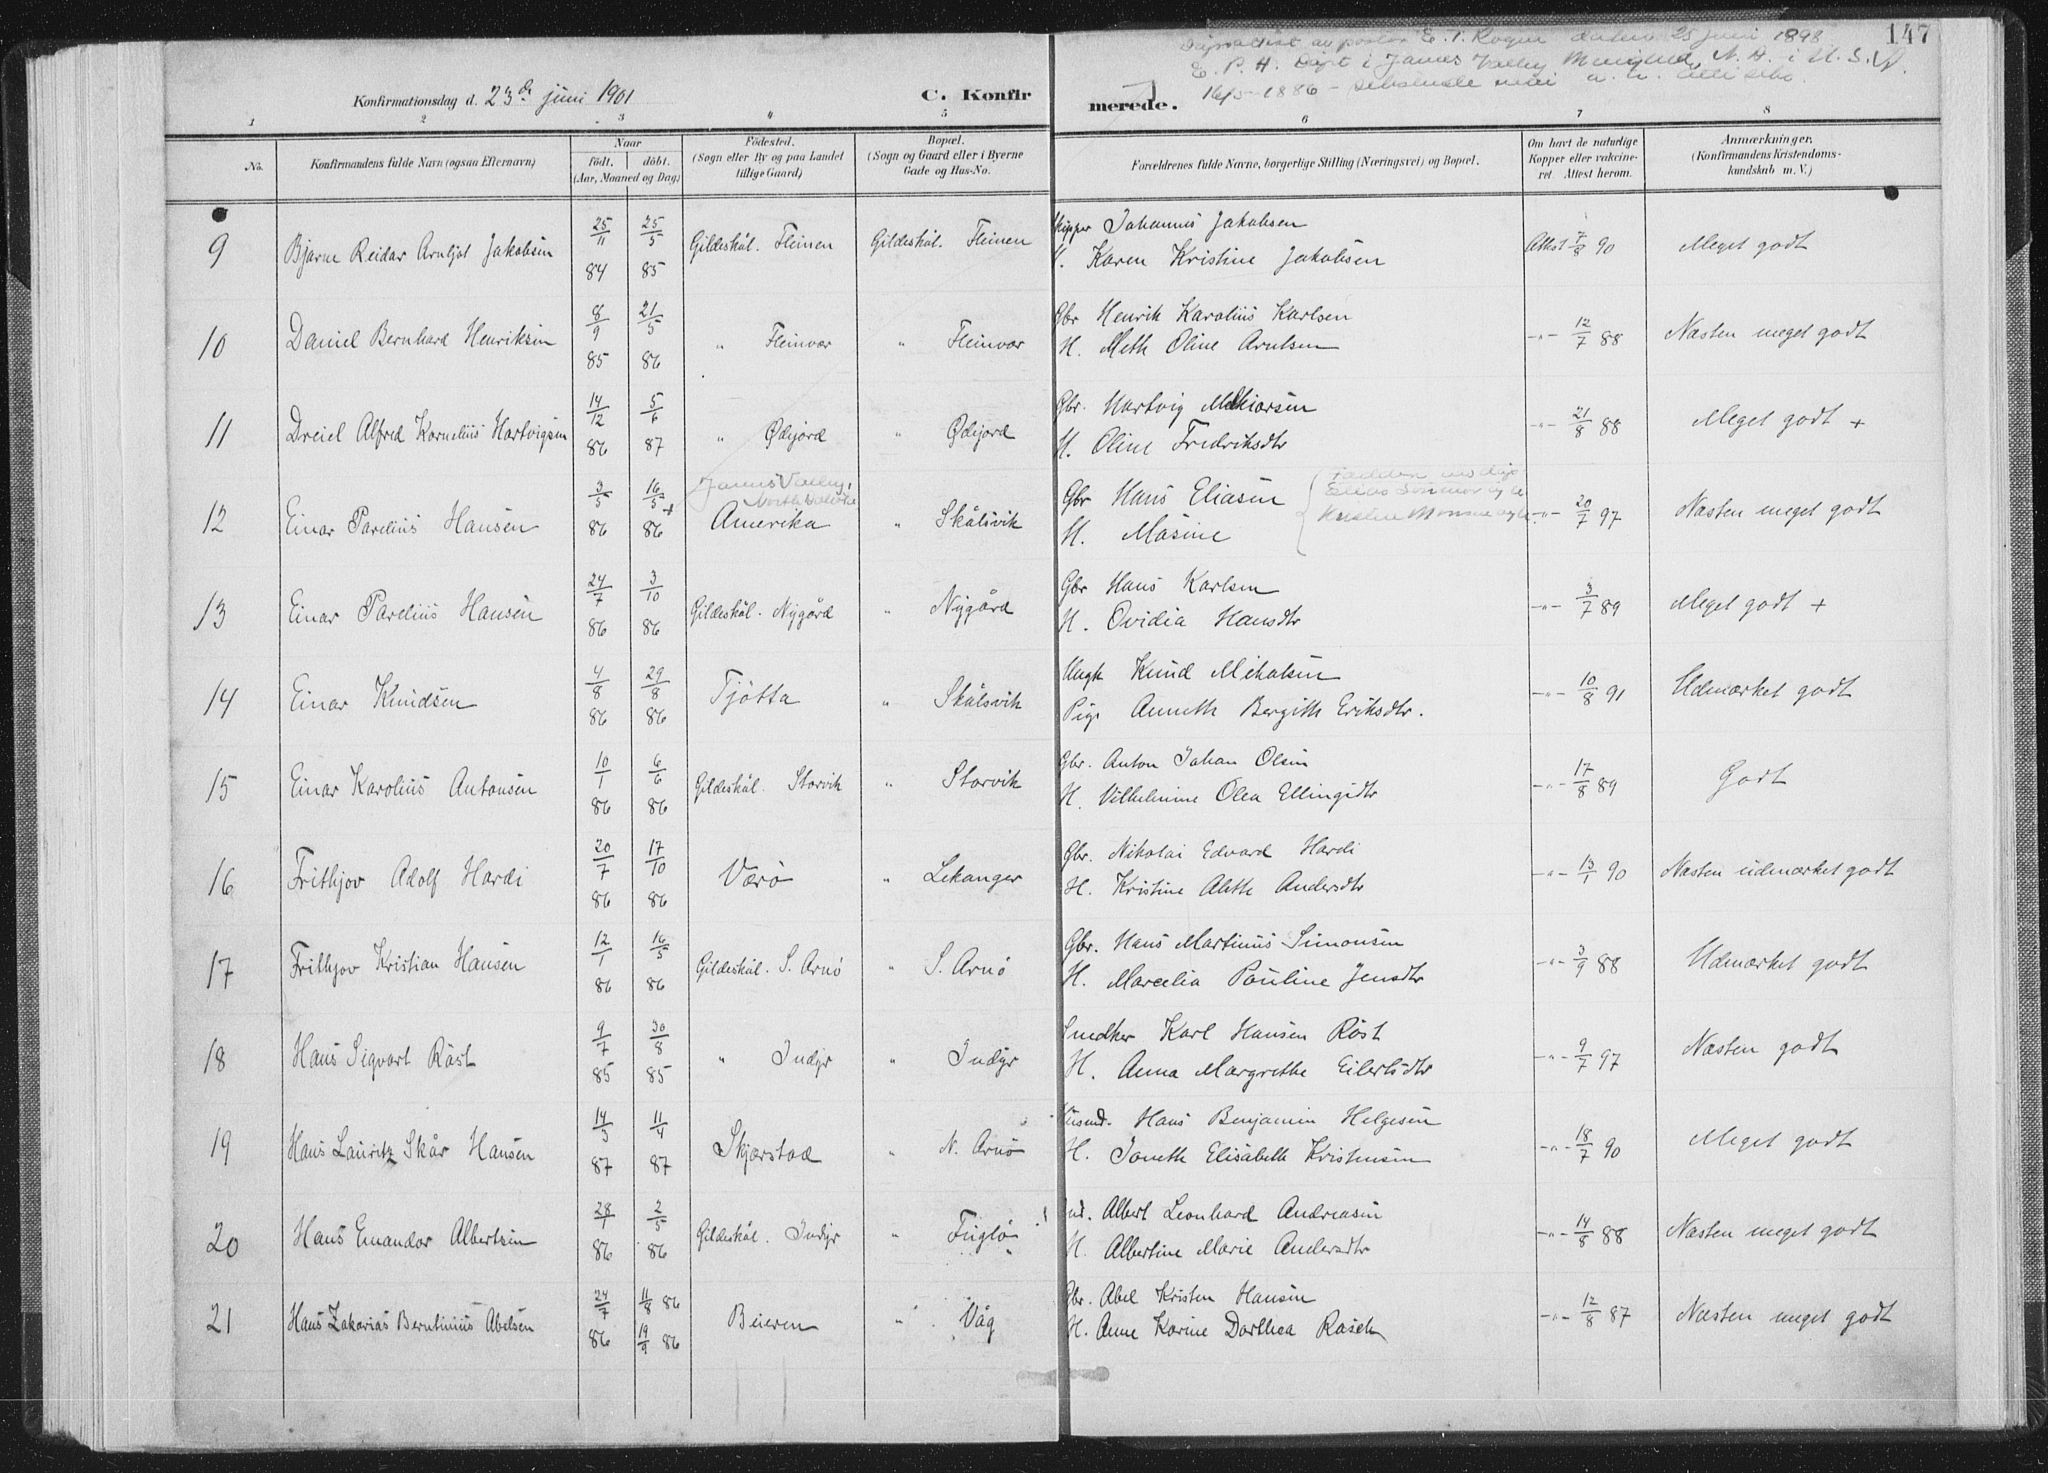 147
E. P. H. i James Valley N. D. i U. S. A.
16/5 1886
Konfirmationsdag d. 23de juni 1901
C. Konfirmerede.
1 2 3 4 5 6 7 8
No.
Konfirmandens fulde Navn (ogsaa Efternavn)
Naar
födt. döbt.
(Aar, Maaned og Dag)
Födested.
(Sogn eller By og paa Landet
tillige Gaard)
Bopæl.
(Sogn og Gaard eller i Byerne
Gade og Hus-No.
Forældrenes fulde Navne, borgerlige Stilling (Næringsvei) og Bopæl.
Om havt de naturlige
Kopper eller vakcine-
ret. Attest herom.
Anmærkninger.
(Konfirmandens Kristendoms-
kundskab m. V.)
9 Bjarne Reidar Arntjot Jakobsen 25/11 84 25/5 85 Gildeskål. Fleinen Gildeskål. Fleinen Skipper Johannes Jakobsen Attest 7/8 90 Meget godt
H. Karen Kristine Jakobsen
10 Daniel Bernhard Henriksen 8/9 85 21/5 86 " Fleinvær " Fleinvær Gbr Henrik Karolius Karlsen -"- 12/7 88 Næsten meget godt
H. Meth Oline Arntsen
11 Dreiel Alfred Kornelius Hartvigsen 14/12 86 5/6 87 " Ødijord " Ødijord Gbr. Hartvig Mekiorsen -"- 21/8 88 Meget godt +
H. Oline Fredriksdtr
12 Einar Parelius Hansen 3/5 86 16/5 86 + James Valley, North Dakota Amerika " Skålsvik Gbr Hans Eliasen -"- 20/7 97 Næsten meget godt
H. Masine
13 Einar Parelius Hansen 24/7 86 3/10 86 Gildeskål. Nygård " Nygård Gbr Hans Karlsen -"- 3/7 89 Meget godt +
H. Ovidia Hansdtr
14 Einar Knudsen 4/8 86 29/8 86 Tjötta " Skålsvik Ungk Knud Mikalsen -"- 10/8 91 Udmærket godt
Pige Anneth Bergith Eriksdtr.
15 Einar Karolius Antonsen 10/1 86 6/6 86 Gildeskål. Storvik " Storvik Gbr. Anton Johan Olsen -"- 17/8 89 Godt
H. Vilhelmine Olea Ellingsdtr
16 Frithjov Adolf Hardi 20/7 86 17/10 86 Værö " Lekanger Gbr. Nikolai Edvard Hardi -"- 13/1 90 Næsten udmærket godt
H. Kristine Aleth Andersdtr
17 Frithjov Kristian Hansen 12/1 86 16/5 86 Gildeskål. S. Arnö " S. Arnö Gbr. Hans Martinus Simonsen -"- 3/9 88 Udmærket godt
H. Marcelia Pauline Jensdtr
18 Hans Sigvart Röst 9/7 85 30/8 85 " Indyr " Indyr Snedker Karl Hansen Röst -"- 9/7 97 Næsten godt
H. Anna Margrethe Eilertsdtr
19 Hans Lauritz Skår Hansen 14/3 87 11/4 87 Skjerstad " N. Arnö Husmd. Hans Benjamin Helgesen -"- 18/7 90 Meget godt
H. Joneth Elisabeth Kristensen
20 Hans Emandor Albertsen 28/1 86 2/5 86 Gildeskål. Indyr " Fuglö Ind. Albert Leonhard Andreasen -"- 14/8 88 Næsten meget godt
H. Albertine Marie Andersdtr
21 Hans Zakarias Berntinius Abelsen 24/7 86 11/8 86 19/9 86 Beieren " Våg Gbr. Abel Kristen Hansen -"- 12/8 87 Næsten meget godt
H. Anne Karine Dorthea Rasch